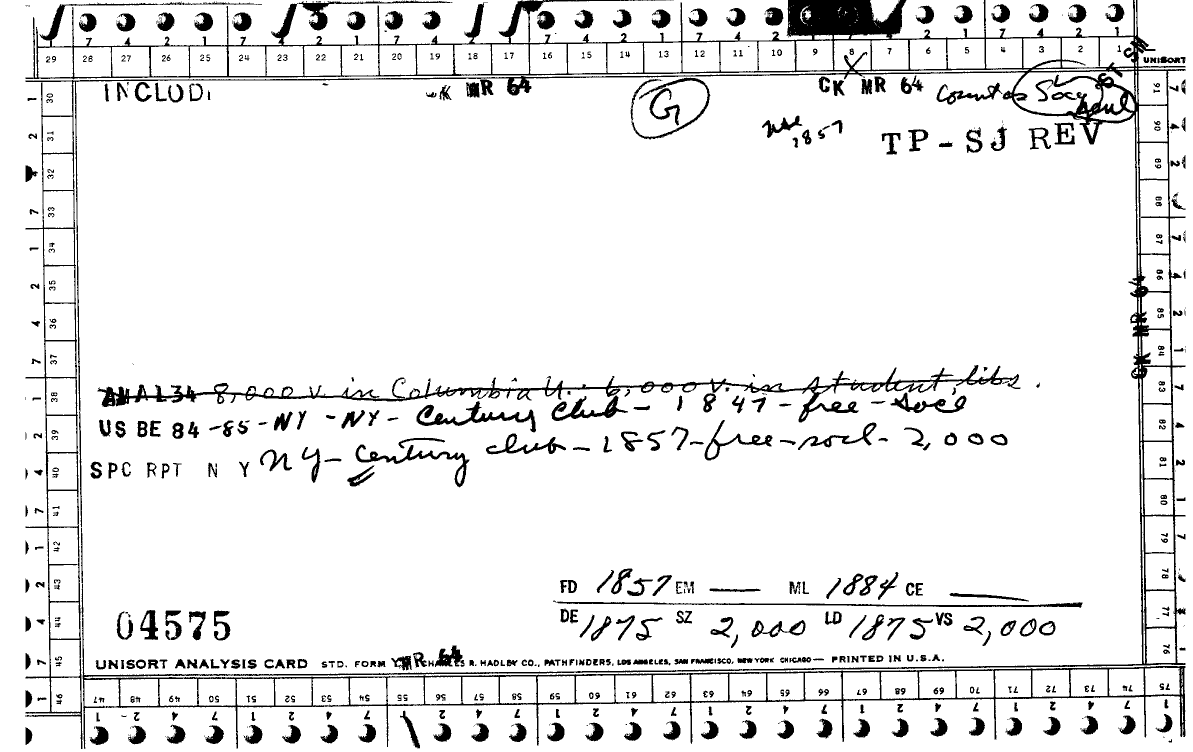 7 4 2 1 7 4 2 1 7 4 2 1 7 4 2 1 7 4 2 1
29 28 27 26 25 24 23 22 21 20 19 18 17 16 15 14 13 12 11 10 9 8 7 6 5 4 3 2 1 UNISORT
INCLODI
MR 64
G
CK MR 64
Count as Socy
use 1857
TP-SJ REV
CK MR 64
ANAL34 8,000 v. in Columbia U. 6,000 v. in student libs.
US BE 84-85-NY-NY-Century Club-1847-free-socl
SPC RPT N Y NY-Century club-1857-free-socl-2,000
FD 1857 EM — ML 1884 CE —
DE 1875 SZ 2,000 LD 1875 VS 2,000
04575
UNISORT ANALYSIS CARD STD. FORM Y MR 64 CHARLES R. HADLEY CO., PATHFINDERS, LOS ANGELES, SAN FRANCISCO, NEW YORK CHICAGO— PRINTED IN U.S.A.
47 48 49 50 51 52 53 54 55 56 57 58 59 60 61 62 63 64 65 66 67 68 69 70 71 72 73 74 75